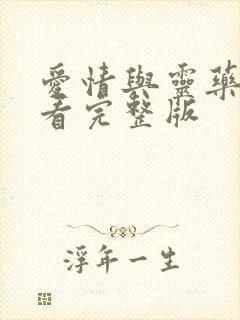 愛情與靈藥
看完整版
浮年一生